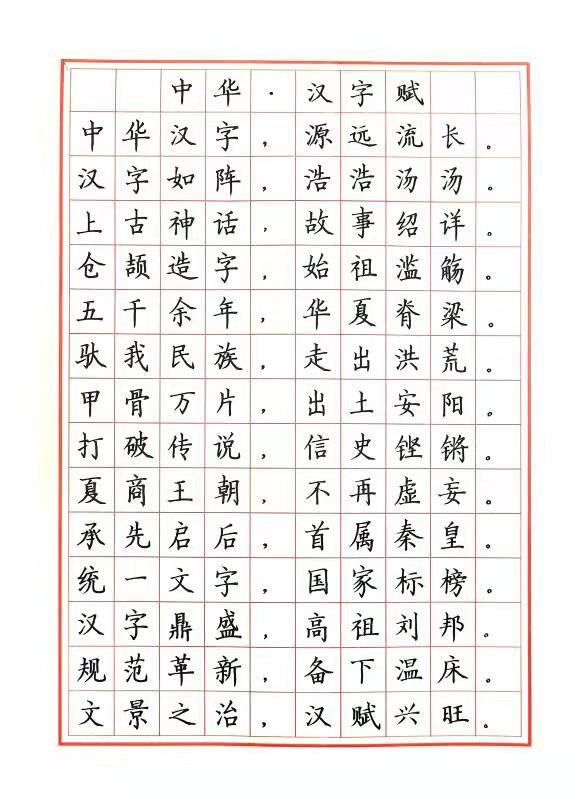 中华·汉字赋
中华汉字，源远流长。
汉字如阵，浩浩汤汤。
上古神话，故事绍详。
仓颉造字，始祖滥觞。
五千余年，华夏脊梁。
驮我民族，走出洪荒。
甲骨万片，出土安阳。
打破传说，信史铿锵。
夏商王朝，不再虚妄。
承先启后，首属秦皇。
统一文字，国家标榜。
汉字鼎盛，高祖刘邦。
规范革新，备下温床。
文景之治，汉赋兴旺。